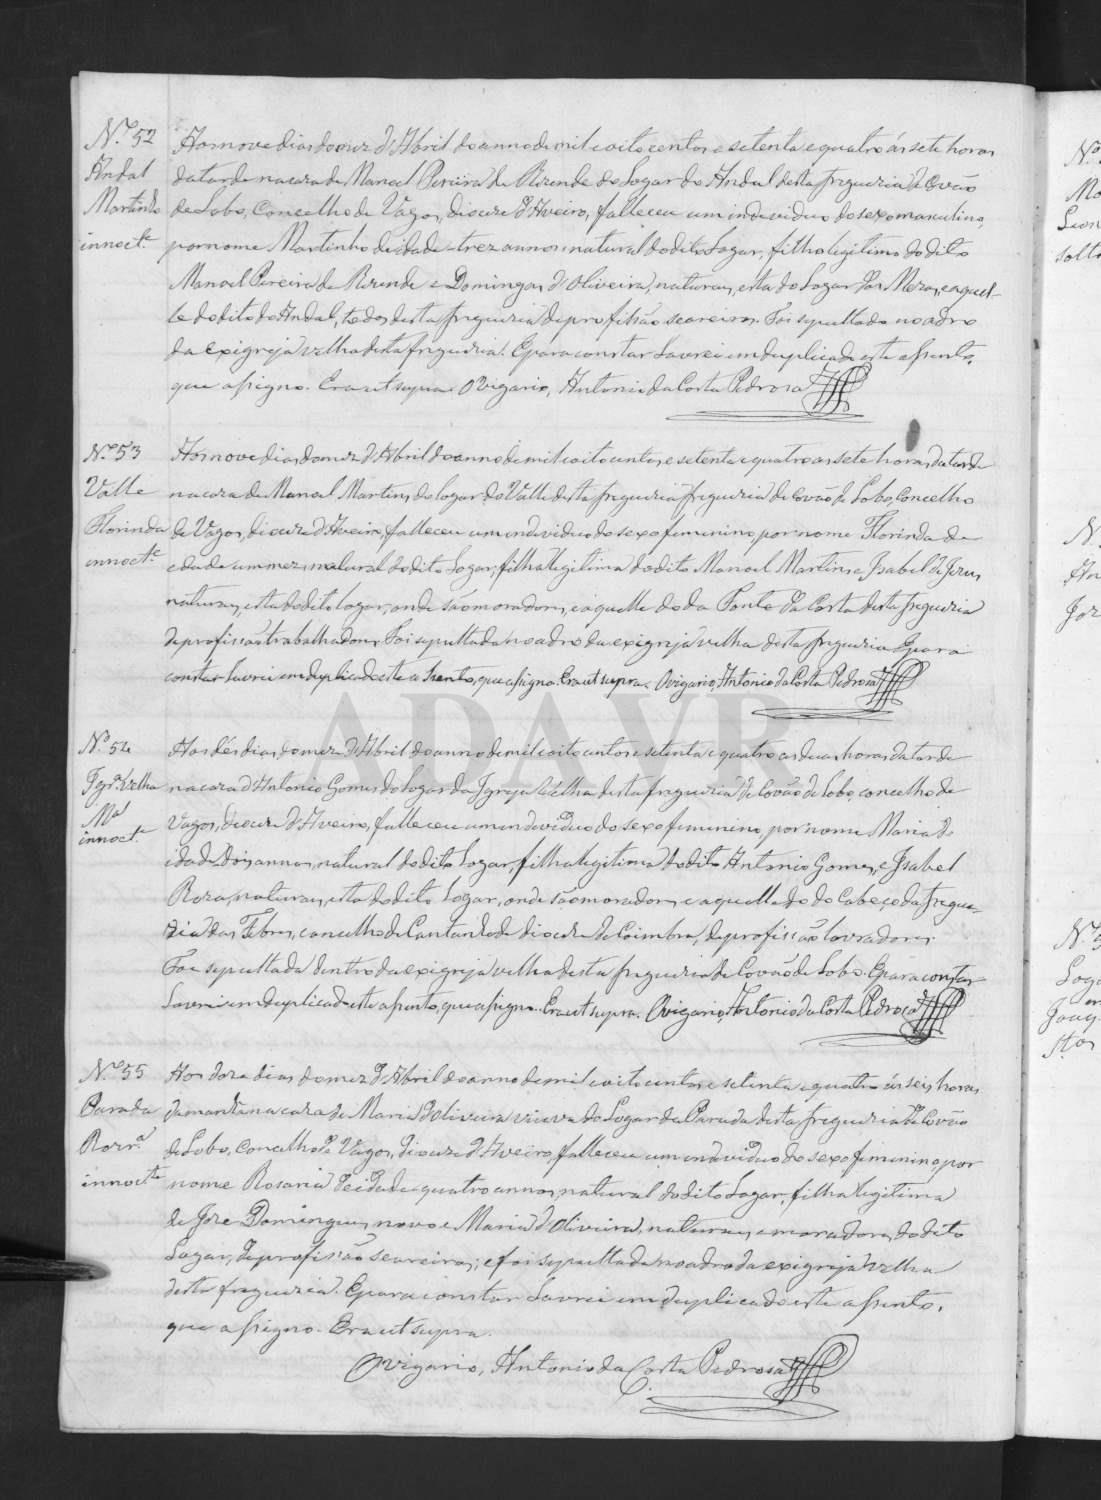 N.º 52
Andal
Martinho
innoct.e
Aos nove dias do mez d'Abril do anno de mil e oito centos e setenta e quatro ás sete horas
da tarde na caza de Manoel Pereira de Rezende do Logar do Andal desta freguezia de Covão
de Lobo, Concelho de Vagos, diocese d'Aveiro, falleceu um individuo do sexo masculino,
por nome Martinho de idade trez annos natural do dito Logar, filho legitimo do dito
Manoel Pereira de Rezende e Domingas d'Oliveira, naturaes, esta do Logar das Mezas, e aquel-
le do dito do Andal, todos desta freguezia de profissão seareiros. Foi sepultado no adro
da exigreja velha desta freguezia. E para constar lavrei em duplicado este assento,
que assigno. Era ut supra. O Vigario, Antonio da Costa Pedrosa
N.º 53
Valle
Florinda
innoct.e
Aos nove dias do mez d'Abril do anno de mil e oito centos e setenta e quatro as sete horas da tarde
na caza de Manoel Martins do logar do Valle desta freguezia freguezia de Covão de Lobo, Concelho
de Vagos, diocese d'Aveiro, falleceu um individuo do sexo feminino, por nome Florinda de
edade um mez, natural do dito Logar, filha legitima do dito Manoel Martins e Isabel de Jesus,
naturaes, esta do dito logar, onde são moradores, e aquelle do da Ponte da Costa desta freguezia
de profissão trabalhadores. Foi sepultada no adro da exigreja velha desta freguezia. E para
constar lavrei em duplicado este assento, que assigno. Era ut supra. O Vigario, Antonio da Costa Pedrosa
N.º 54
Igr.ª Velha
M.ª
innoct.e
Aos dés dias do mez d'Abril do anno de mil e oito centos e setenta e quatro as duas horas da tarde
na caza d'Antonio Gomes do Logar da Igreja Velha desta freguezia de Covão de Lobo, concelho de
Vagos, diocese d'Aveiro, falleceu um individuo do sexo feminino, por nome Maria de
idade dois annos, natural do dito Logar, filha legitima do dito Antonio Gomes, e Isabel
Roza, naturaes, esta do dito Logar, onde são moradores e aquelle do do Cabeço da fregue-
zia das Febres, concelho de Cantanhede diocese de Coimbra, de profissão lavradores.
Foi sepultada dentro da exigreja velha desta freguezia de Covão de Lobo. E para constar
lavrei em duplicado este assento, que assigno. Era ut supra. O Vigario, Antonio da Costa Pedrosa
N.º 55
Parada
Rozr.ª
innoct.e
Aos doze dias do mez d'Abril do anno de mil e oito centos e setenta e quatro ás seis horas
da manhã na caza de Maria d'Oliveira viuva do Logar da Parada desta freguezia de Covão
de Lobo, Concelho de Vagos, diocese d'Aveiro, falleceu um individuo do sexo feminino, por
nome Rosaria de idade quatro annos, natural do dito Logar, filha legitima
de Jose Domingues novo e Maria d'Oliveira, naturaes e moradores do dito
Logar, de profissão seareiros; e foi sepultada no adro da exigreja velha
desta freguezia. E para constar lavrei em duplicado este assento,
que assigno. Era ut supra.
O Vigario, Antonio da Costa Pedrosa
ADAVR